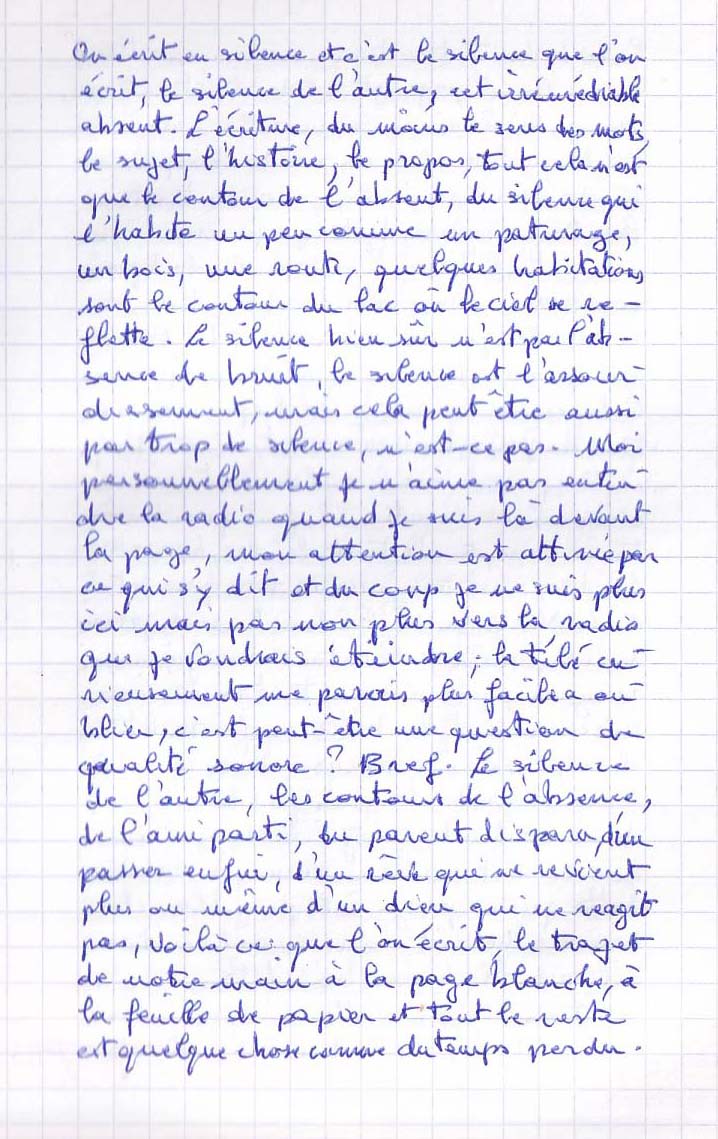 On écrit en silence et c'est le silence que l'on
écrit, le silence de l'autre, cet irrémédiable
absent. L'écriture, du moins le sens des mots,
le sujet, l'histoire, le propos, tout cela n'est
que le contour de l'absent, du silence qui
l'habite un peu comme un paturage,
un bois, une route, quelques habitations
sont le contour du lac où le ciel se re-
flette. Le silence bien sûr n'est pas l'ab-
sence de bruit, le silence est l'assour-
dissement, mais cela peut être aussi
par trop de silence, n'est-ce pas. Moi
personnellement je n'aime pas enten-
dre la radio quand je suis là devant
la page, mon attention est attirée par
ce qui s'y dit et du coup je ne suis plus
ici mais pas non plus vers la radio
que je voudrais éteindre; la télé cu-
rieusement me parais plus facile a ou-
blier, c'est peut-être une question de
qualité sonore? Bref. Le silence
de l'autre, les contours de l'absence,
de l'ami parti, du parent disparu, d'un
passer enfui, d'un rêve que ne revient
plus ou même d'un dieu qui ne reagit
pas, voilà ce que l'on écrit, le trajet
de notre main à la page blanche, à
la feuille de papier et tout le reste
est quelque chose comme du temps perdu.